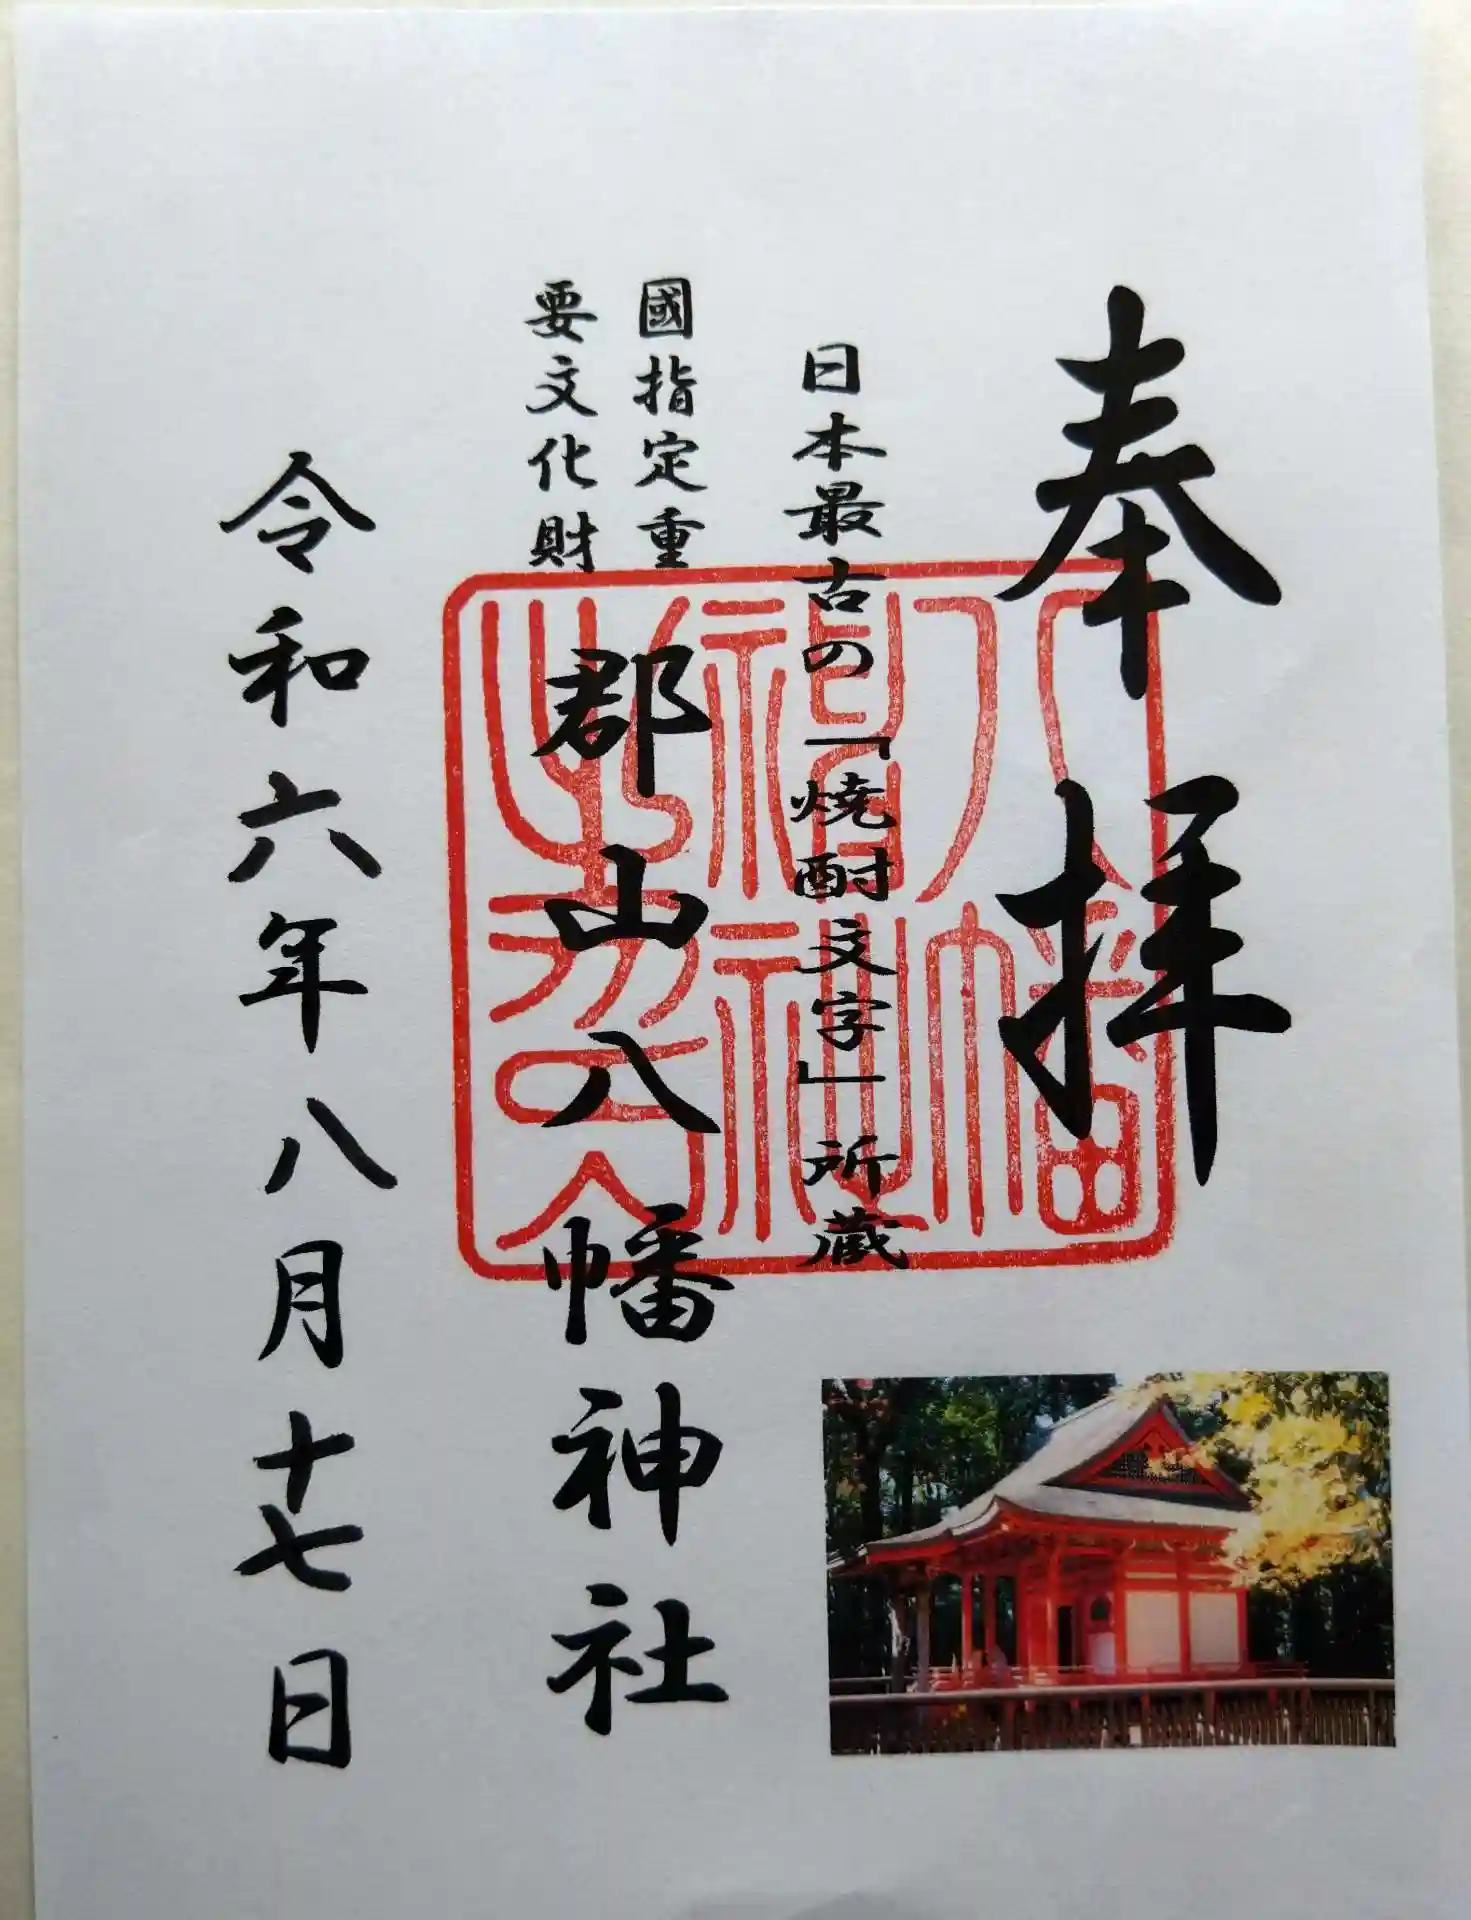 奉拝
日本最古の「焼酎文字」所蔵
國指定重
要文化財
郡山八幡神社
令和六年八月十七日